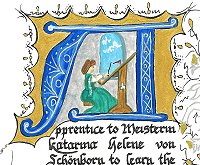 Apprentice to Meisterin
Katarina Helene von
Schönborn to learn the